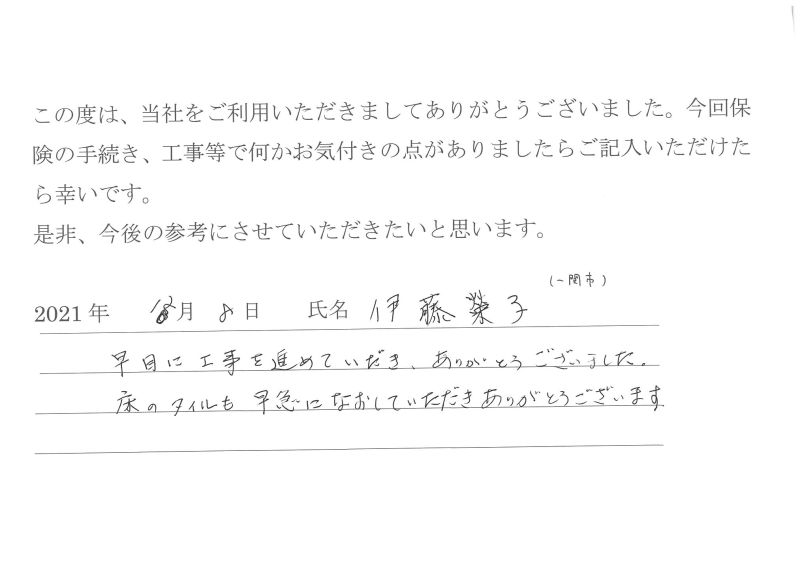 この度は、当社をご利用いただきましてありがとうございました。今回保
険の手続き、工事等で何かお気付きの点がありましたらご記入いただけた
ら幸いです。
是非、今後の参考にさせていただきたいと思います。
(一関市)
2021 年 月 8 日 氏名 伊藤榮子
早日に工事を進めていだき、ありがとうございました。
床のタイルも早急になおしていただきありがとうございます